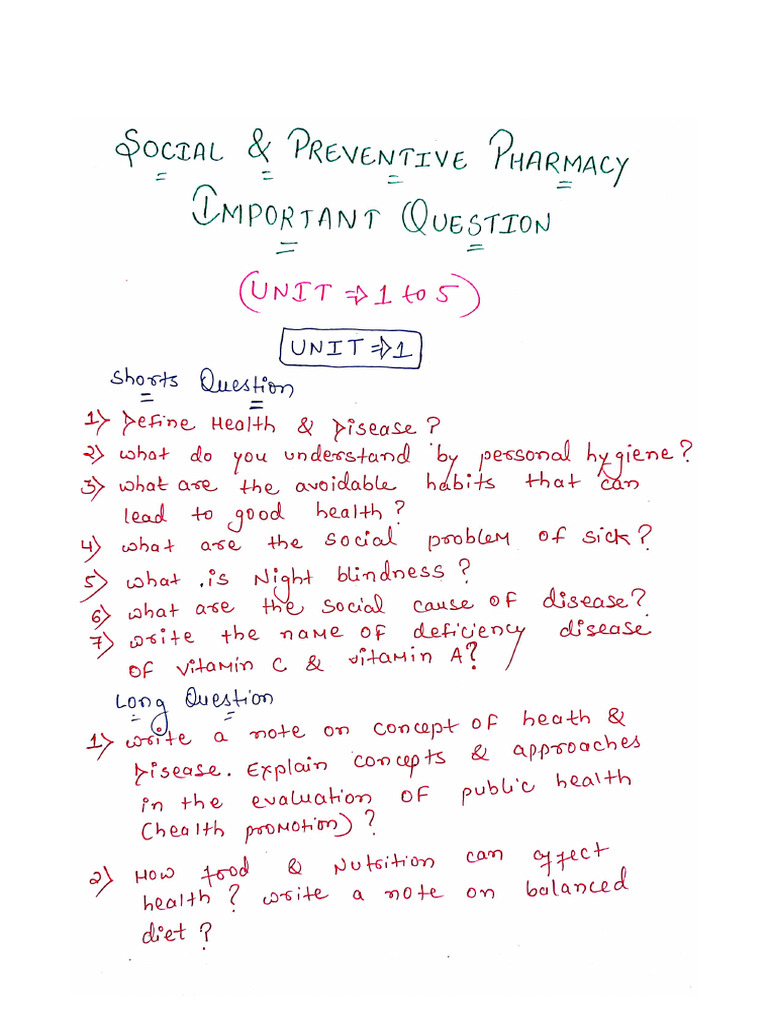 SOCIAL & PREVENTIVE PHARMACY
IMPORTANT QUESTION
(UNIT ⇒ 1 to 5)
UNIT ⇒ 1
Shorts Question
1) Define Health & Disease?
2) what do you understand by personal hygiene?
3) what are the avoidable habits that can
lead to good health?
4) what are the social problem of sick?
5) what is Night blindness?
6) what are the social cause of disease?
7) write the name of deficiency disease
of vitamin C & vitamin A?
Long Question
1) write a note on concept of heath &
Disease. Explain concepts & approaches
in the evaluation of public health
(health promotion)?
2) How food & Nutrition can affect
health? write a note on balanced
diet?